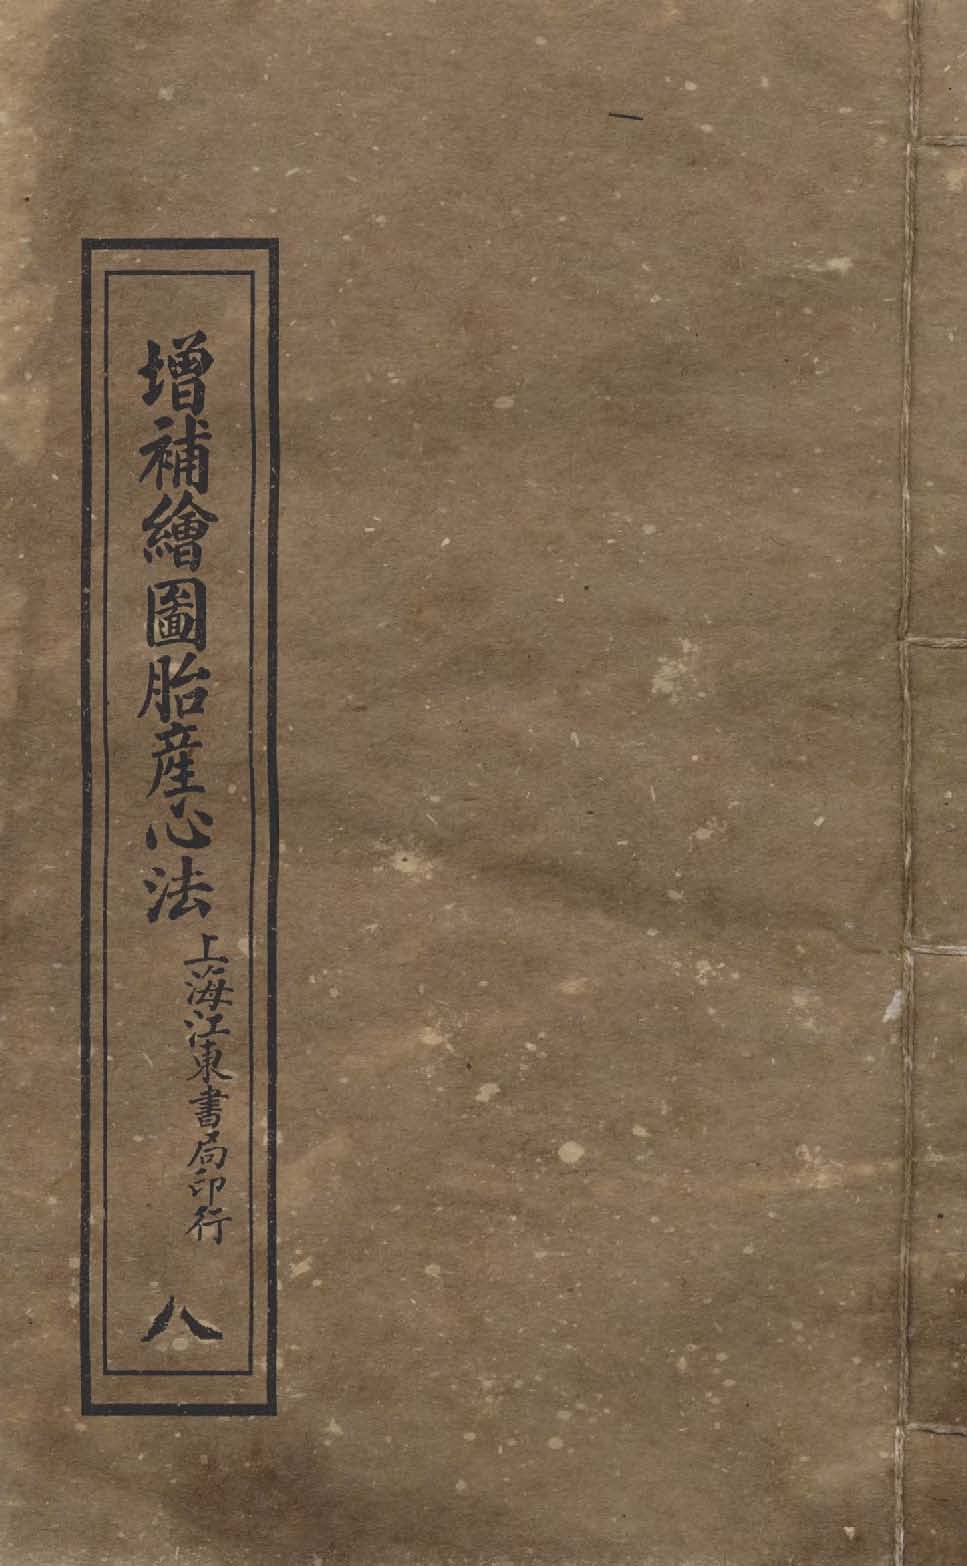 增補繪圖胎産心法
上海江東書局印行
八